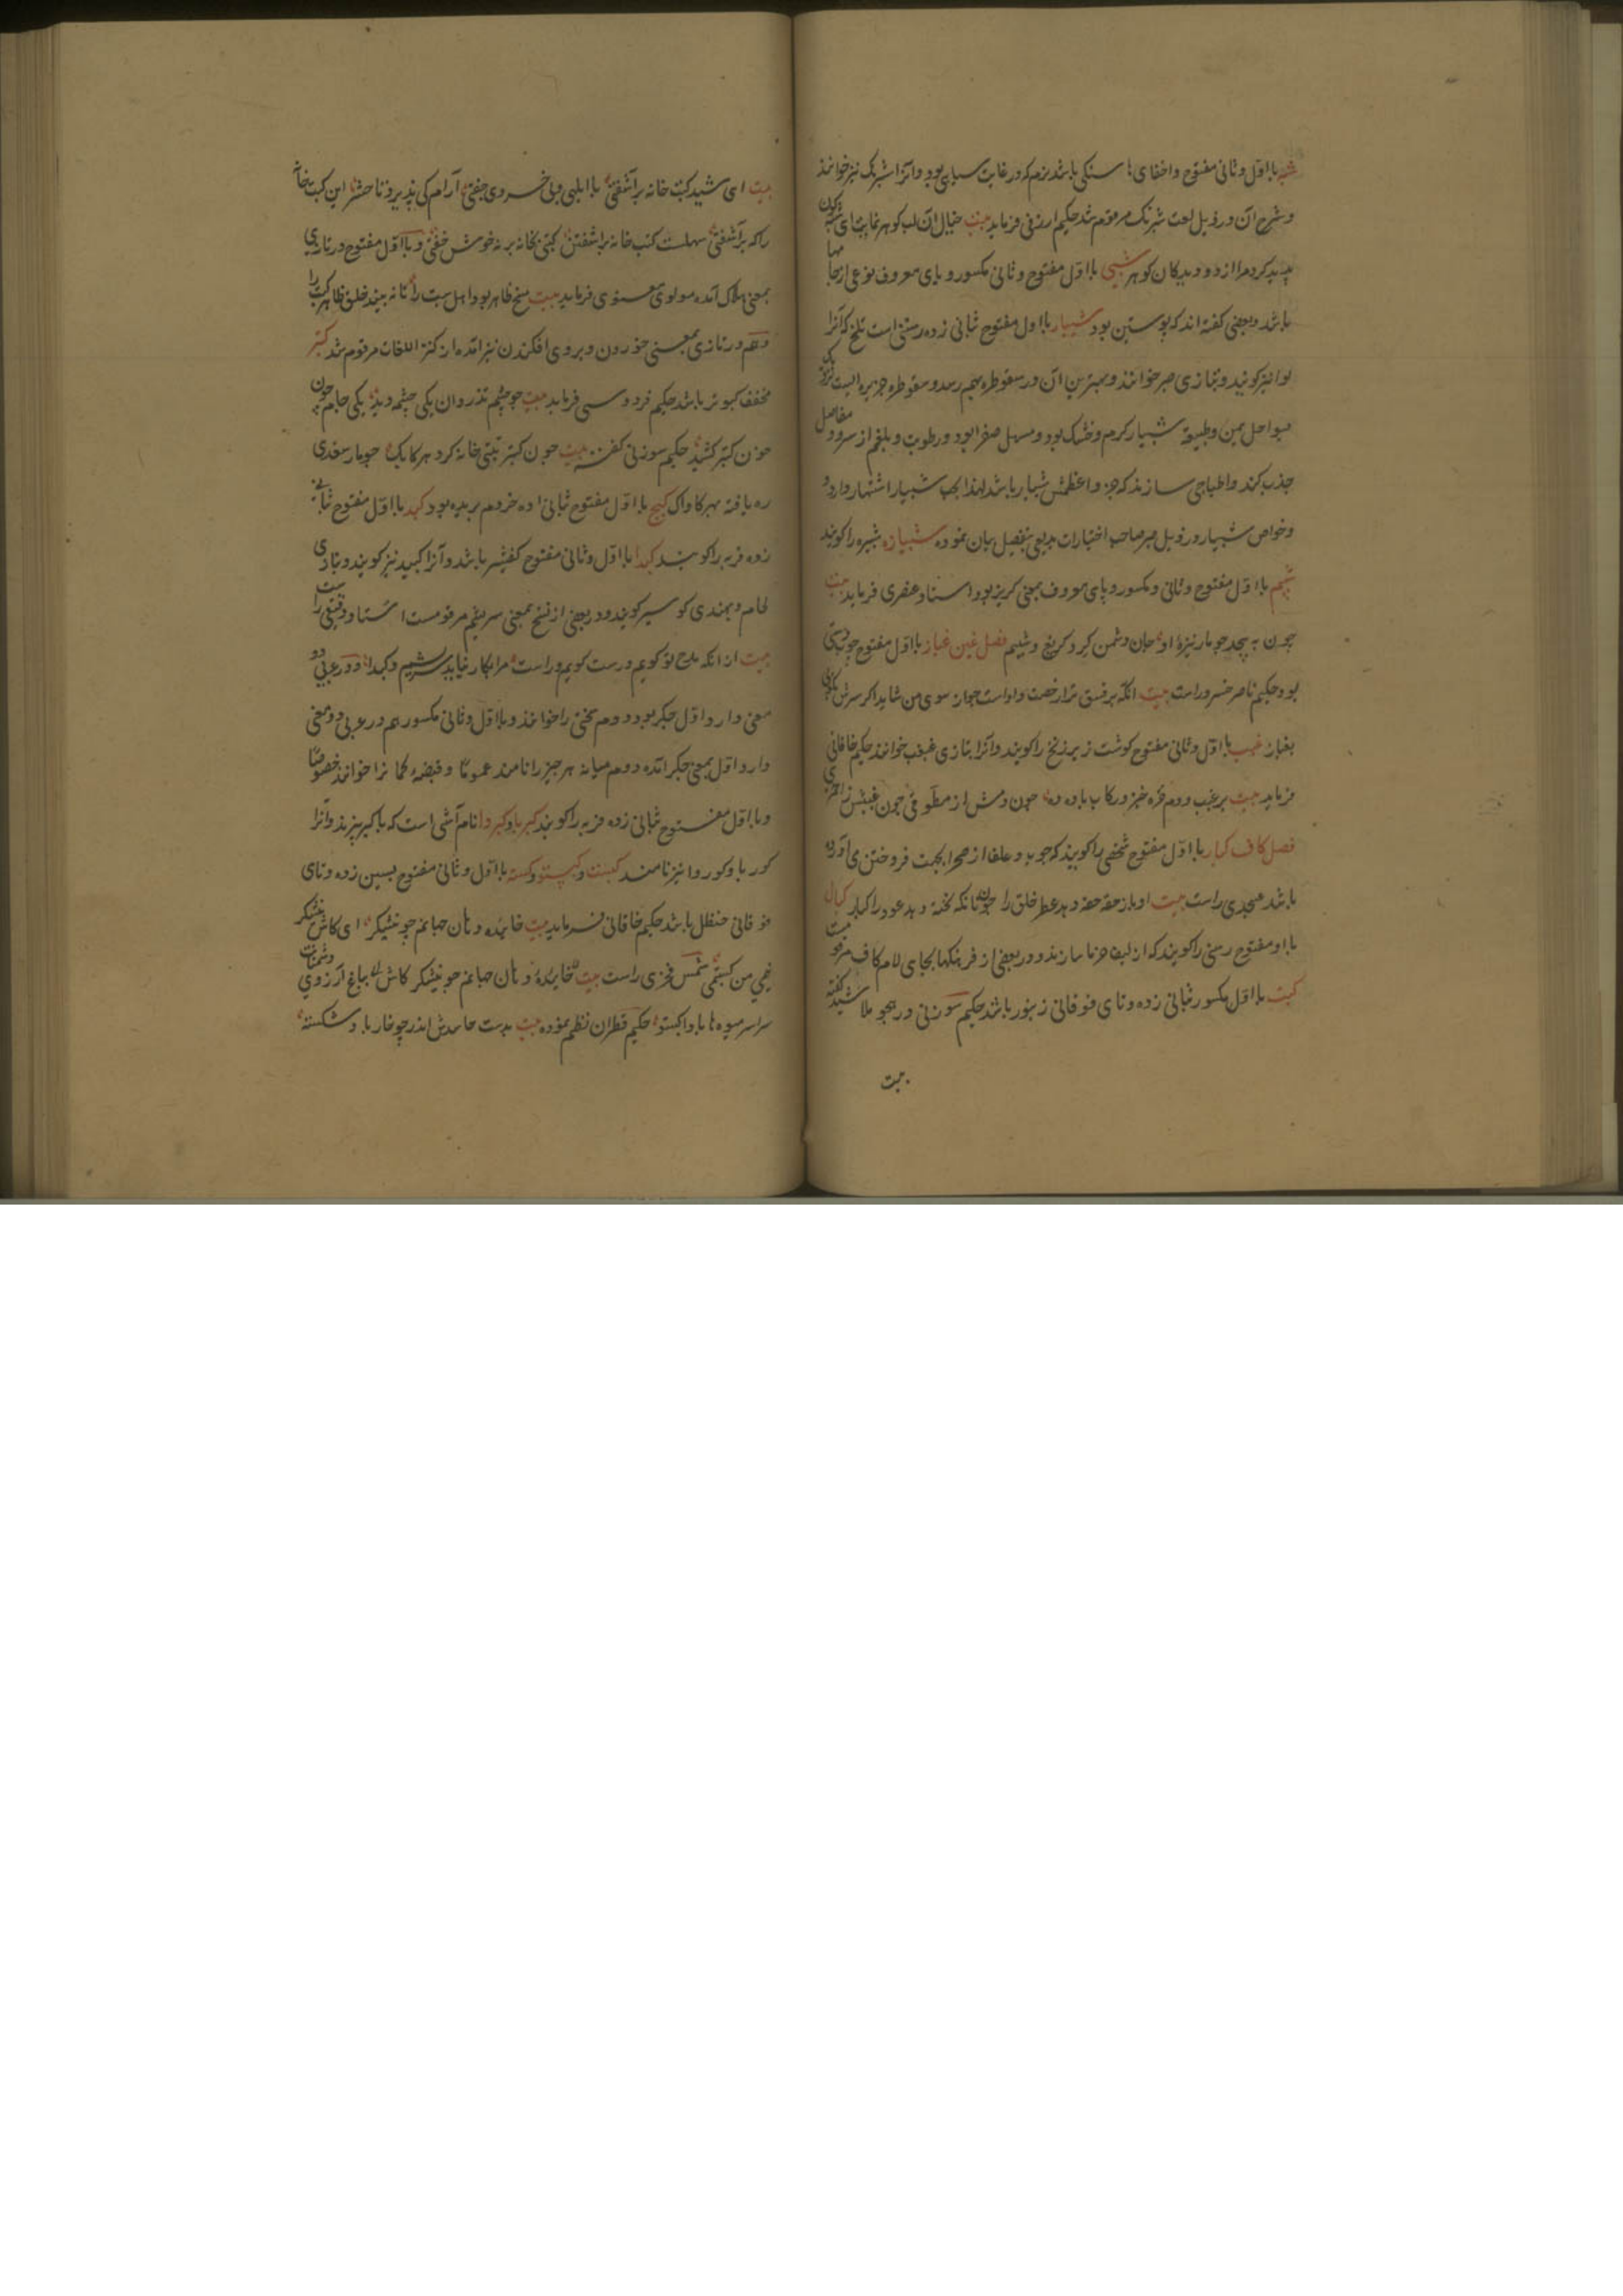 شبه با اول و ثانی مفتوح و اخفای ها سنکی باشد نرم که در غایت سیاهی بود و آنرا شبرنک نیز خوانند
و شرح آن در ذیل لغت شبرنک مرقوم شد حکیم ازرقی فرماید بیت خیال آن لب کوهر نمایت ای شبه
پدید کرد مرا از دو دیدکان کوهر شبی با اول مفتوح و ثانی مکسور و یای معروف نوعی از جامها
باشد و بعضی کفته اند که پوستین بود شبیار با اول مفتوح بثانی زده رستنی است تلخ که آنرا
لوا نیز کویند و بتازی صبر خوانند و بهترین آن در سقوطره بهم رسد و سقوطره جزیره ایست نزدیک
بسواحل یمن و طبیعة شبیار کرم و خشک بود و مسهل صفرا بود و رطوبت و بلغم از سر و مفاصل
جذب کند و اطبا حبی سازند که جزو اعظمش شبیار باشد لهذا بحب شبیار اشتهار دارد و
و خواص شبیار در ذیل صبر صاحب اختیارات بدیعی بتفصیل بیان نموده شبیازه شبپره را کویند
شیم با اول مفتوح و ثانی مکسور و یای معروف بمعنی کریز بود استاد عنصری فرماید بیت
چون بپیچد چو مار نیزهٔ او جان دشمن کرد کریغ و شیم فصل غین غباز با اول مفتوح چوبدستی
بود حکیم ناصر خسرو راست بیت انکه بر فسق ترا رخصت داد است جواز سوی من شاید اکر سرش بکوبی
بغباز غبب با اول و ثانی مفتوح کوشت زیر زنخ را کویند و آنرا بتازی غبغب خوانند حکیم خاقانی
فرماید بیت بر غبب و دم
فصل کاف کبار با اول مفتوح شخصی را کویند که چوب و علف از صحرا بجهت فروختن می آورده
باشد عسجدی راست بیت او باز حقه حقه دهد عطر خلق را چونانکه تخته تخته دهد عود را کبار کبال
با او مفتوح رسنی را کویند که از لیف خرما سازند و در بعضی از فرهنکها بجای لام کاف مرقومست
کبت با اول مکسور بثانی زده و تای فوقانی زنبور باشد حکیم سوزنی در هجو ملا شیدی کفته
بیت
بیت ای شیدی کبت خانه بر آشفتی با ابلهی و بی خسروی جفتی آرام کی پذیرد تا حشر این کبت خانه
را که بر آشفتی سهلست کبت خانه بر آشفتن کبتی بخانه بر نه خوش خفتی و با اول مفتوح در تازی
بمعنی هلاک آمده مولوی معنوی فرماید بیت
و هم در تازی بمعنی خوردن و بروی افکندن نیز آمده از کنز اللغات مرقوم شد کبتر
مخفف کبوتر باشد حکیم فردوسی فرماید بیت چو چشم تذروان یکی چشمه دید یکی جام چون
خون کبتر کشید حکیم سوزنی کفته بیت چون کبتر بتی خانه کرد
ره یافته بهر کاواک کبج با اول مفتوح بثانی زده خر دم بریده بود کبد با اول مفتوح بثانی
زده فربه را کویند کبدا با اول و ثانی مفتوح کفشیر باشد و آنرا کبید نیز کویند و بتازی
لحام و بهندی کوسیر کویند و در بعضی از نسخ بمعنی سریشم مرقومست استاد دقیقی راست
بیت از انکه مدح تو کویم درست کویم و راست مرا بکار نیاید سریشم و کبدا و در عربی دو
معنی دارد اول جکر بود دوم سختی را خوانند و با اول و ثانی مکسور هم در عربی دو معنی
دارد اول بمعنی جکر آمده دوم میانهٔ هر چیز را نامند عموما و قبضهٔ کمانرا خوانند خصوصا
و با اول مفتوح بثانی زده فربه را کویند کبربا و کبروا نام آشی است که با کبر بپزند و آنرا
کوربا و کوروا نیز نامند کبست و کبستو و کبسته با اول و ثانی مفتوح بسین زده و تای
فوقانی حنظل باشد حکیم خاقانی فرماید بیت خائیدهٔ دهان جهانم چو نیشکر ای کاش نیشکر
نیی من کبستمی شمس فخری راست بیت
سراسر میوه ها بادا کبستو حکیم قطران نظم نموده بیت بدست حاسدش اندر چو خار باد شکسته